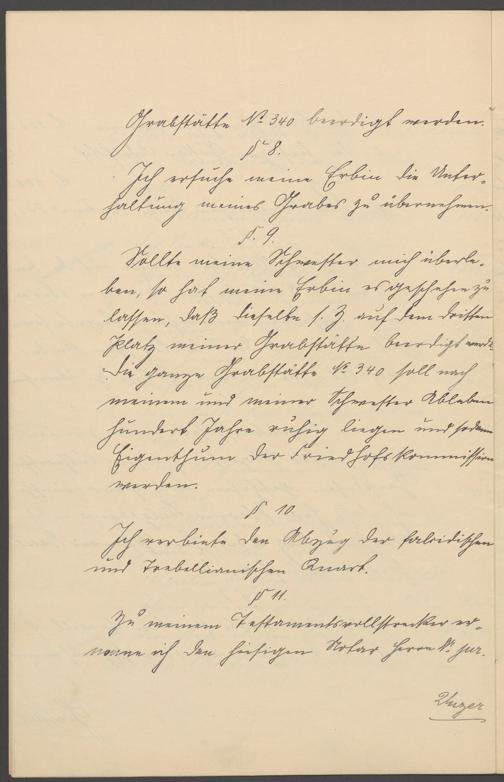 Grabstätte № 340 beerdigt werden.
§ 8.
Ich ersuche meine Erbin die Unter-
haltung meines Grabes zu übernehmen.
§. 9.
Sollte meine Schwester mich überle-
ben, so hat meine Erbin es geschehen zu
lassen, daß dieselbe s. Z. auf dem dritten
Platz meiner Grabstätte beerdigt werde.
Die ganze Grabstätte № 340 soll nach
meinem und meiner Schwester Ableben
hundert Jahre ruhig liegen und sodann
Eigenthum der Friedhofskommission
werden.
§ 10
Ich verbiete den Abzug der falcidischen
und Trebellianischen Quart.
§ 11.
Zu meinem Testamentsvollstrecker er-
nenne ich den hiesigen Notar Herrn Dr. jur.
Unger